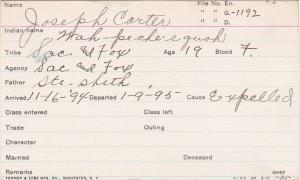 Name File No. En.
Joseph Carter " " G.-1192
Indian Name " " D.
Wah-pe-che-e-quah
Tribe Sac and Fox Age 19 Blood F.
Agency Sac and Fox
Father Ste. Smith,
Arrived 11-16-'94 Departed 1-9-95 Cause Expelled
Class entered Class left
Trade Outing
Character
Married Deceased
Remarks over